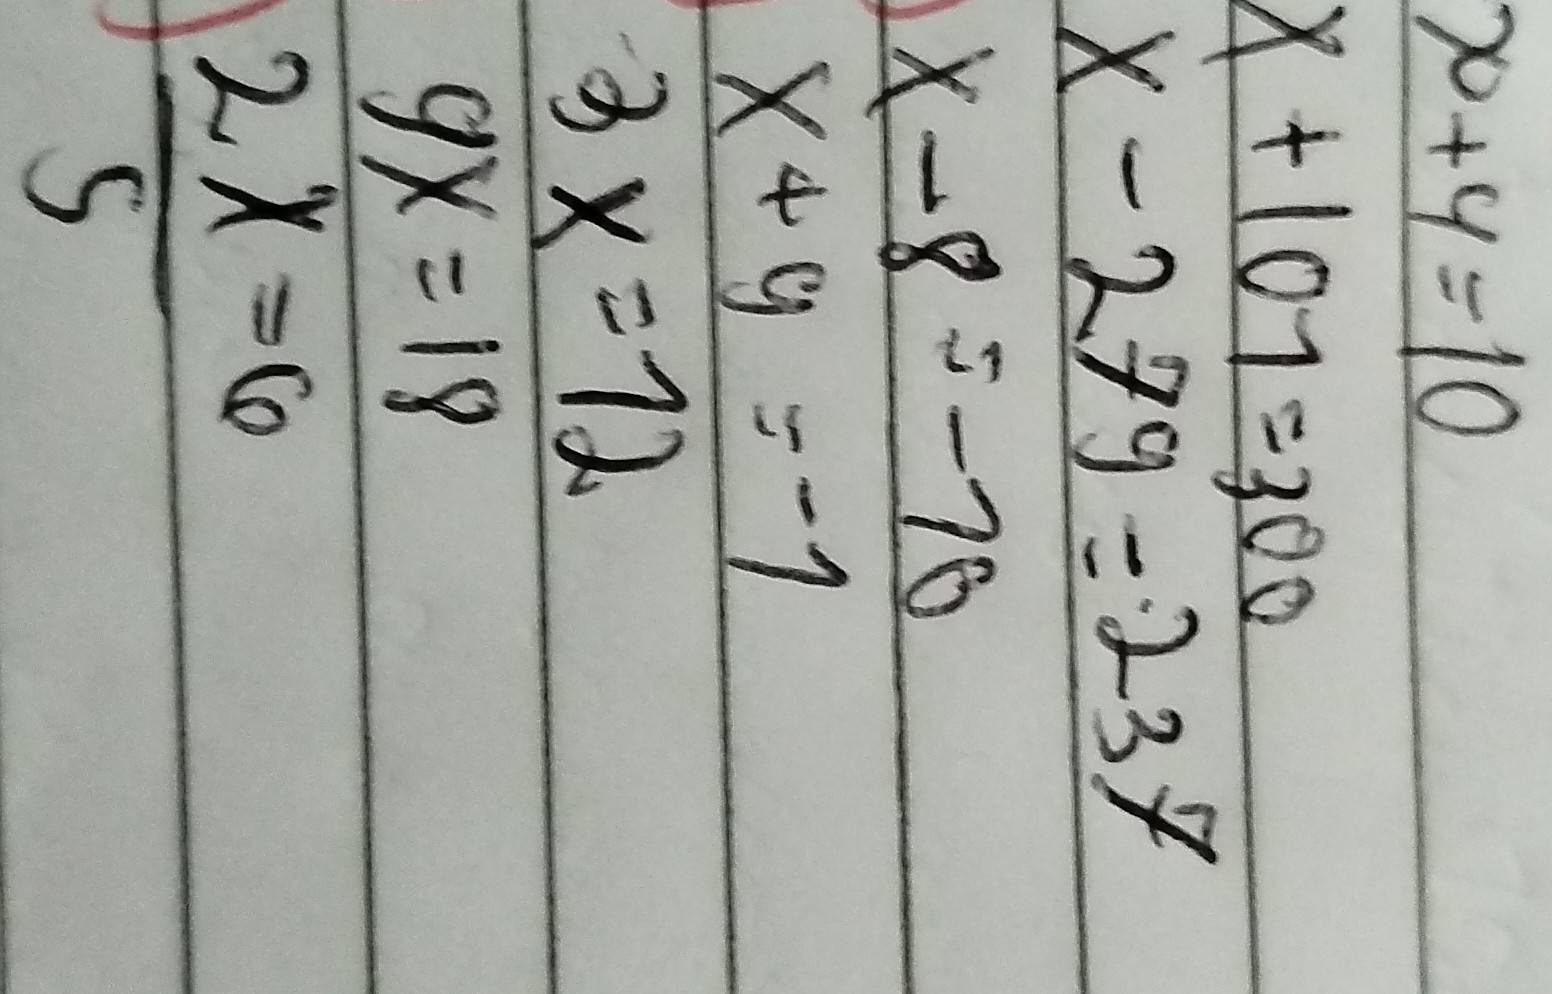 x+4=10
X+101=300
X-279=237
X-8=-16
X+9=-1
3X=12
9X=18
2X=6
5